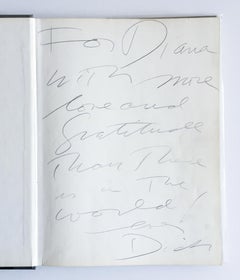 For Diana
with more
love and
Gratitude
Than There
is in The
world!
ever
Dick